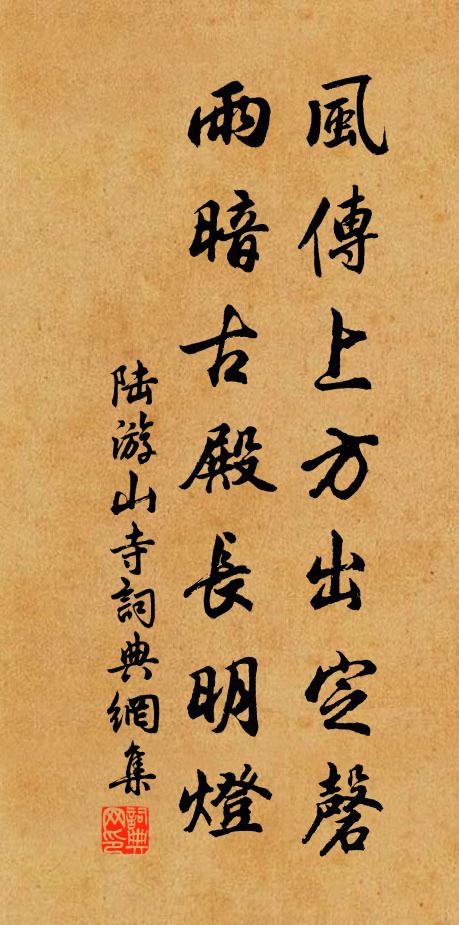 風傳上方出定磬
雨暗古殿長明燈
陆游山寺詞典網集
詞典網印